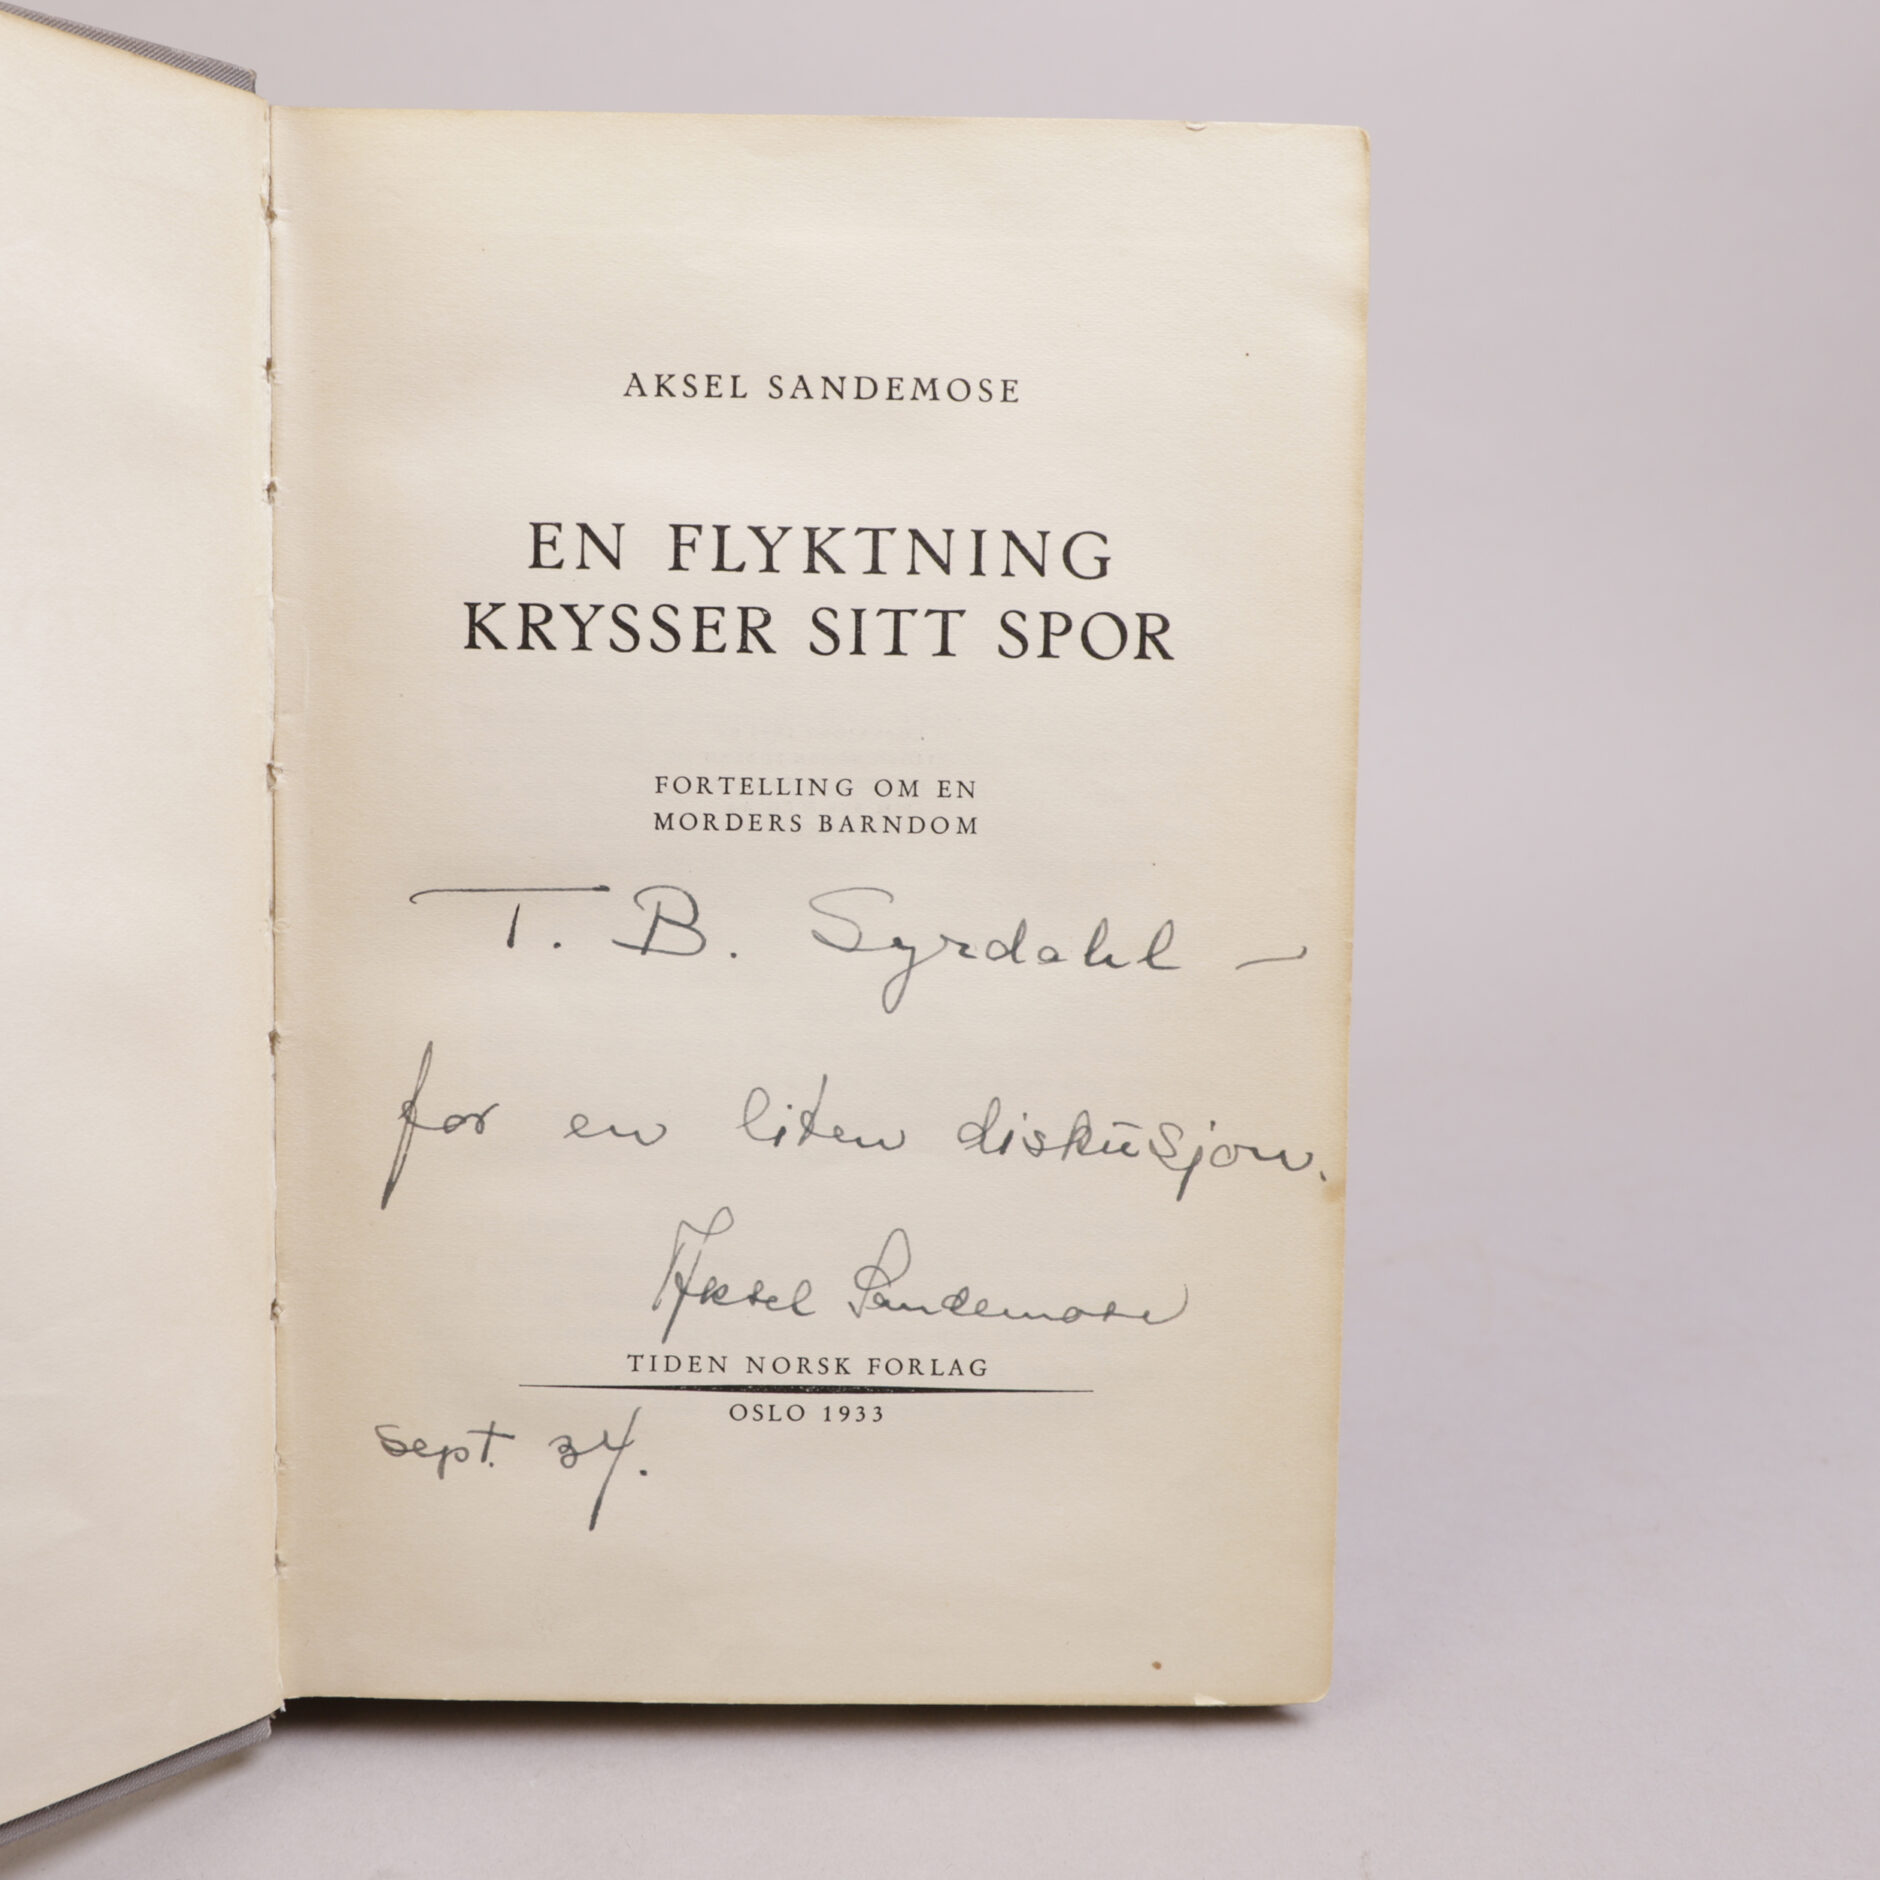 AKSEL SANDEMOSE
EN FLYKTNING
KRYSSER SITT SPOR
FORTELLING OM EN
MORDERS BARNDOM
T. B. Syrdahl –
for en liten diskusjon.
Aksel Sandemose
TIDEN NORSK FORLAG
OSLO 1933
sept. 34.